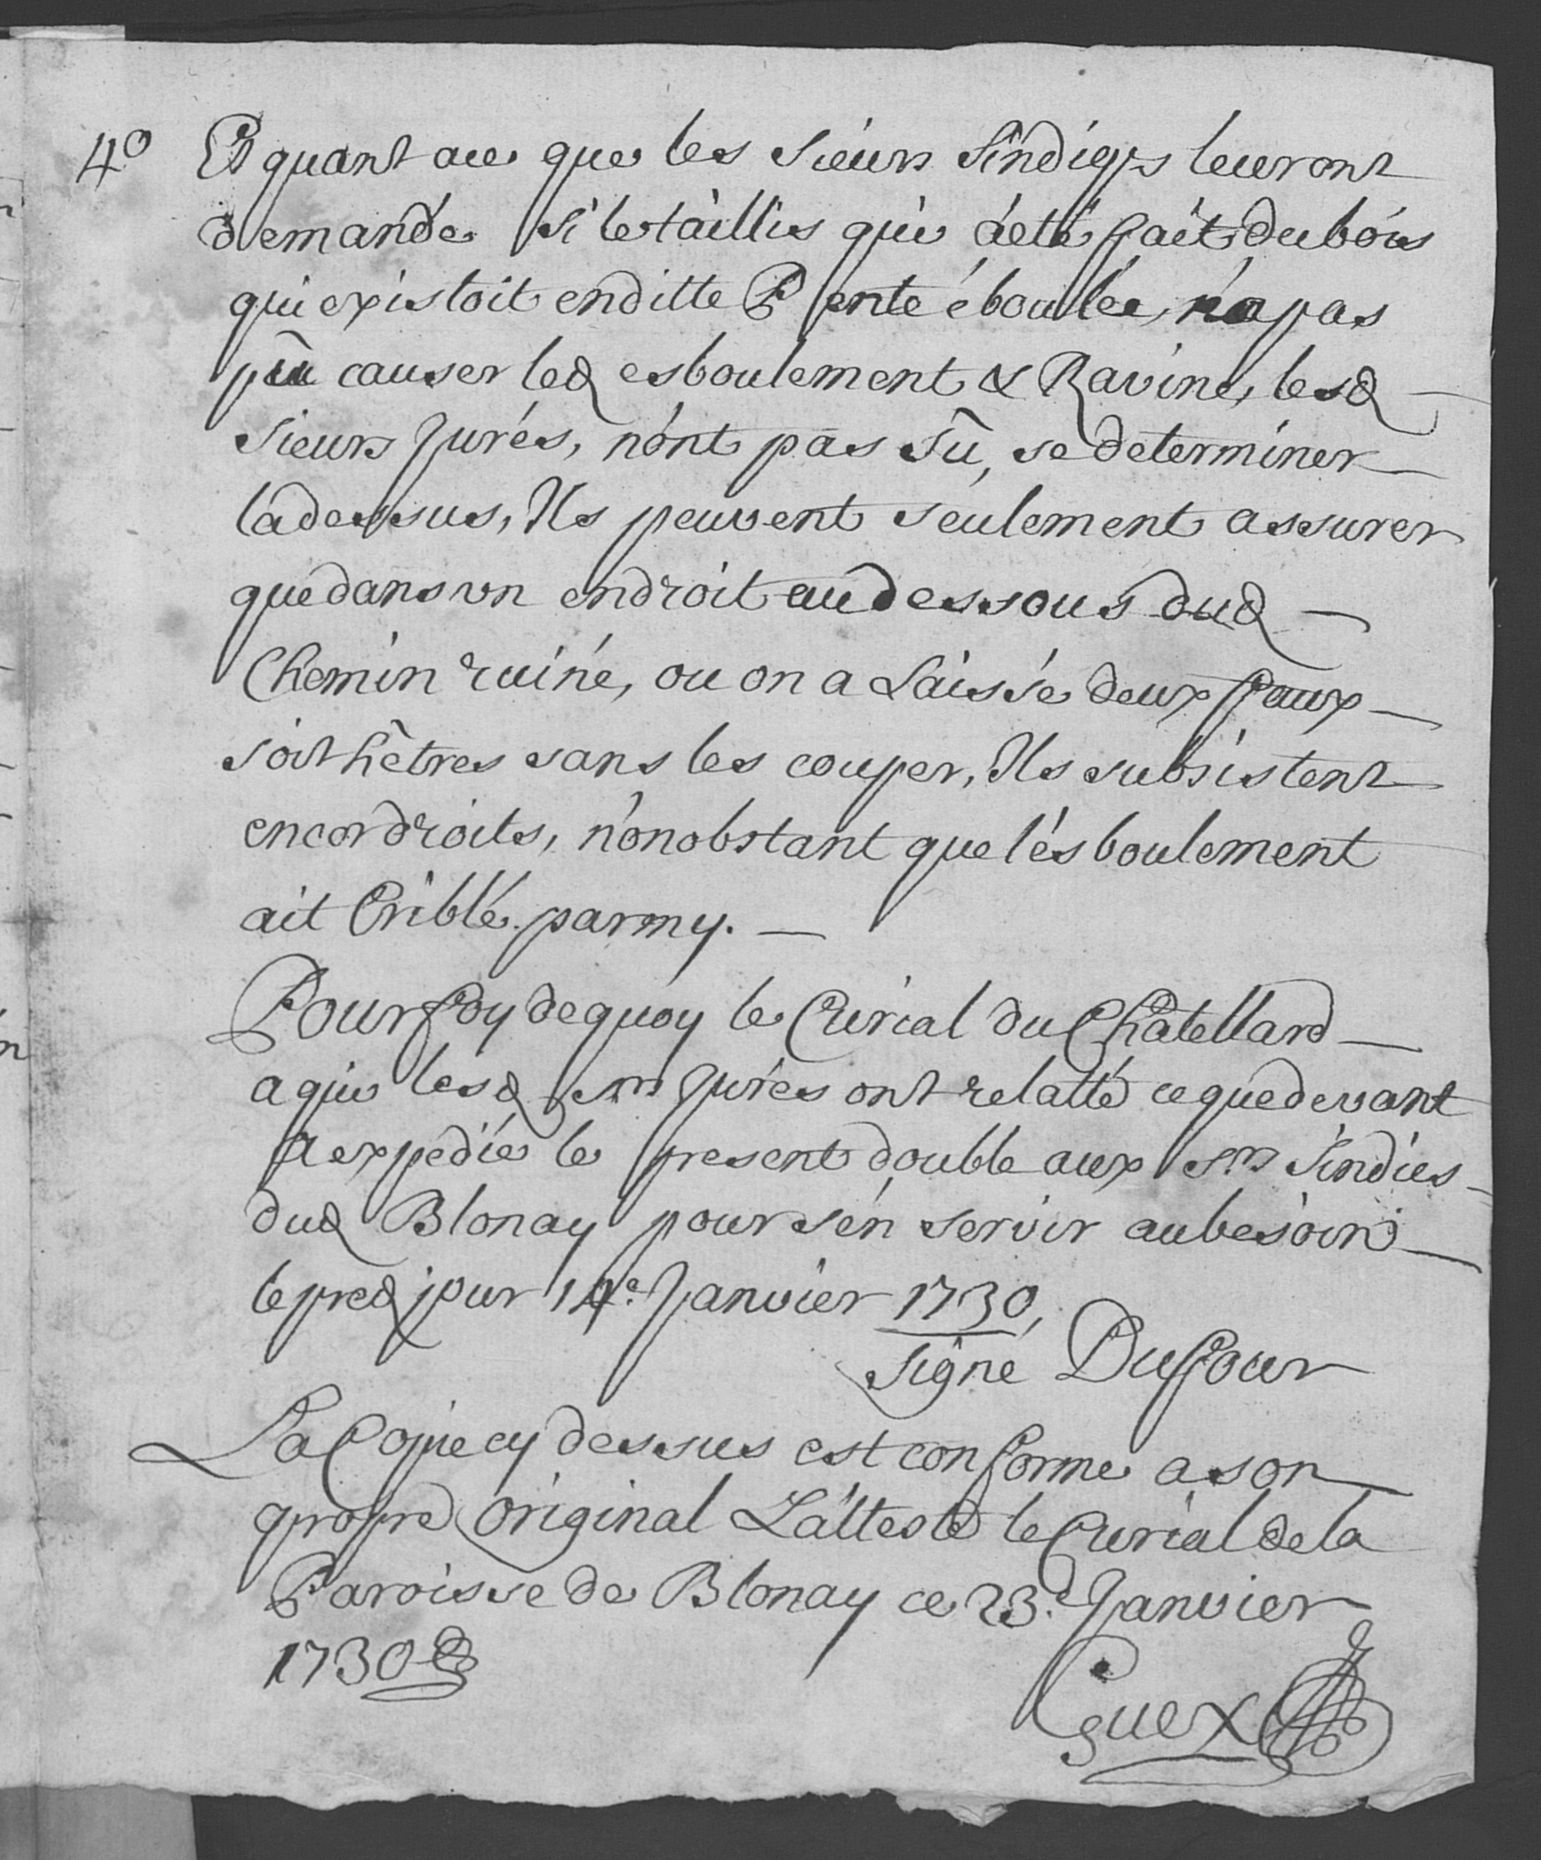 4º Et quant ace que les Sieurs Sindiqs leur ont
demandé si le taillis qui a eté fait du bois
qui existoit enditte Pente éboulée, n'a pas
pû causer led esboulement & Ravine, lesd
Sieurs Jurés, n'ont pas sû, se determiner
ladessus, Ils peuvent seulement assurer
que dans un endroit au dessous dud
Chemin ruiné, ou on a Laissé deux foaux
soit hêtres sans les couper, Ils subsistent
encor droits, nonobstant que l'esboulement
ait Criblé parmy.
Pour foy dequoy le Curial du Châtellard
a qui lesd Srs Jurés ont relatté ce que devant
a expedié le present double aux Srs Sindics
dud Blonay pour s'en servir au besoin
le pred jour 14e Janvier 1730,
Signé Duffour
La Copie cy dessus est conforme a son
propre Original L'atteste le Curial de la
Paroisse de Blonay ce 23e Janvier
1730
Guex